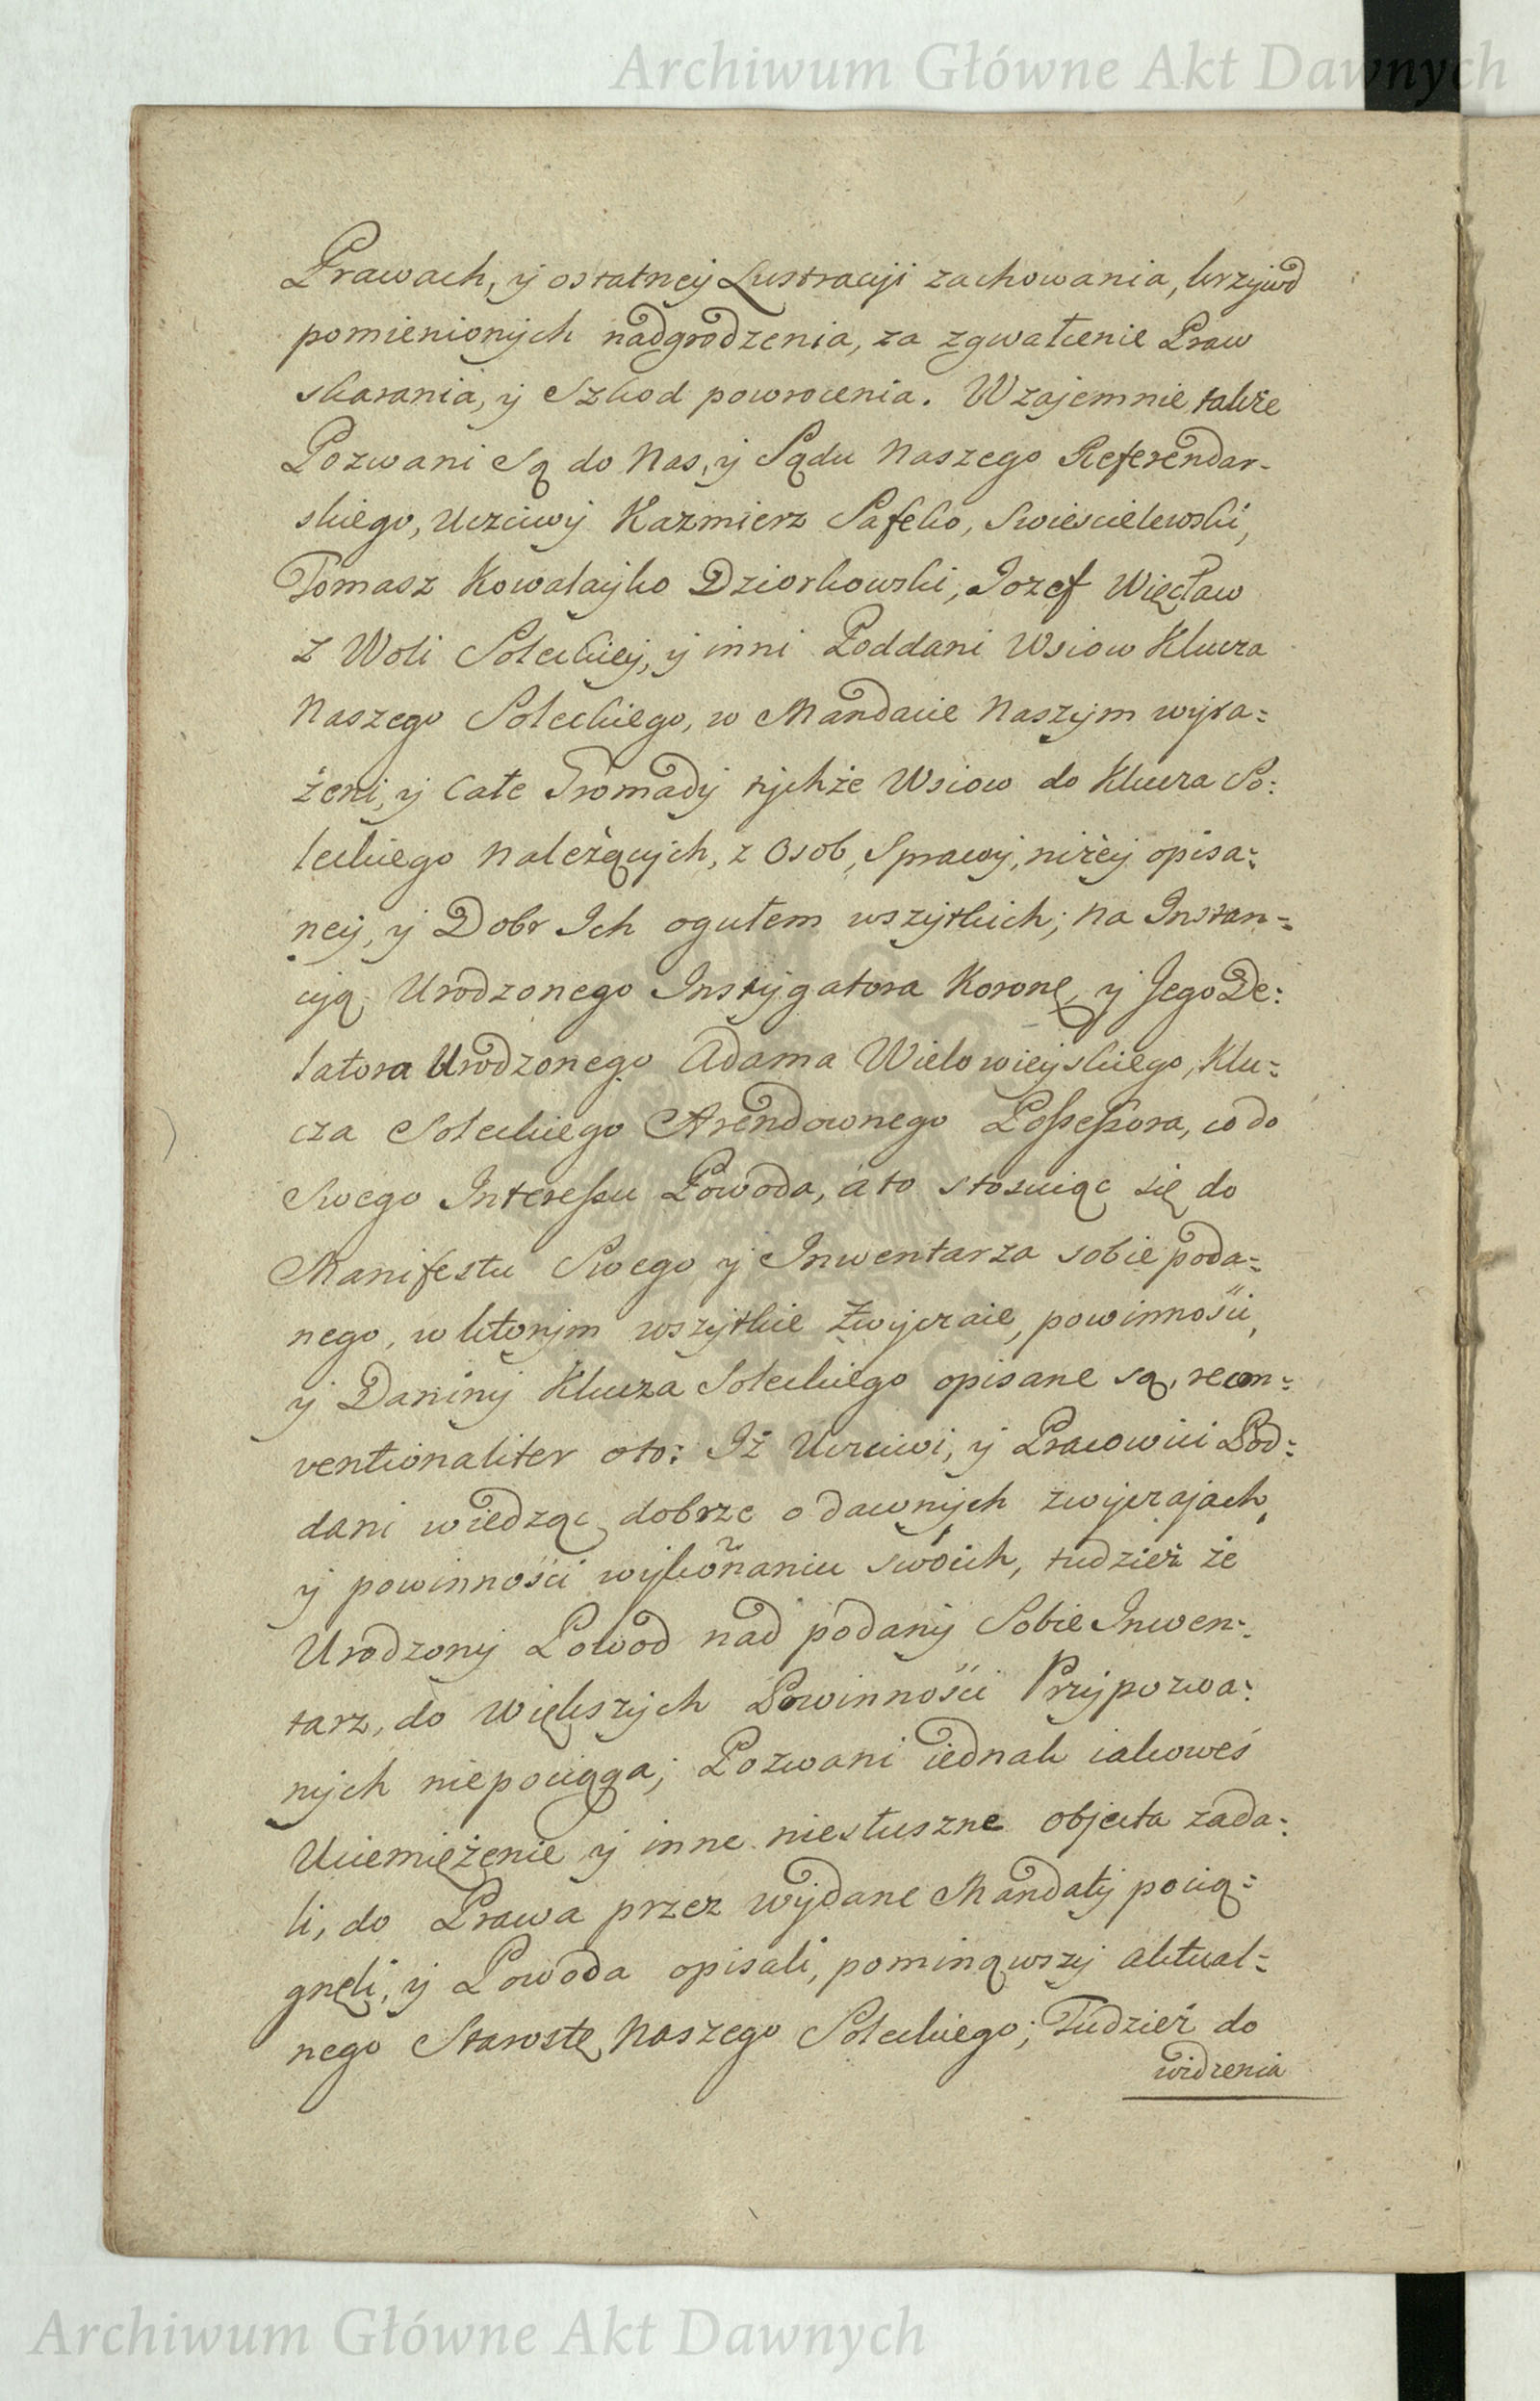 Archiwum Główne Akt Dawnych
Prawach, y ostatney Lustracyi zachowania, krzywd
pomienionych nadgrodzenia, za zgwałcenie Praw
skarania, y Szkod powrocenia. Wzajemnie także
Pozwani są do Nas, y Sądu Naszego Referendar-
skiego, Uczciwy Kazmierz Safeko, Swiescielewski,
Tomasz Kowalayko Dziorkowski, Jozef Więcław
z Woli Soleckiey, y inni Poddani Wsiow Klucza
Naszego Soleckiego, w Mandacie Naszym wyra=
żeni, y Całe Gromady tychże Wsiow do Klucza So=
leckiego Należących, z Osob, Sprawy, niżey opisa=
ney, y Dobr Ich ogułem wszytkich; na Instan=
cyą Urodzonego Instygatora Koronę y Jego De=
latora Urodzonego Adama Wielowieyskiego, Klu=
cza Soleckiego Arendownego Possessora, co do
Swego Interessu Powoda, a to stosuiąc się do
Manifestu Swego y Inwentarza sobie poda=
nego, w ktorym wszytkie Zwyczaie, powinności,
y Daniny Klucza Soleckiego opisane są, recon=
ventionaliter oto: Iż Uczciwi, y Pracowici Pod=
dani wiedząc dobrze o dawnych zwyczajach,
y powinności wykonaniu swoich, tudzież że
Urodzony Powod nad podany Sobie Inwen=
tarz, do Większych Powinności Przypozwa=
nych niepociąga; Pozwani iednak iakoweś
Uciemiężenie y inne niesłuszne objecta zada=
li, do Prawa przez wydane Mandaty pocią=
gneli, y Powoda opisali, pominąwszy aktual=
nego Starostę Naszego Soleckiego; Tudzież do
widzenia
Archiwum Główne Akt Dawnych